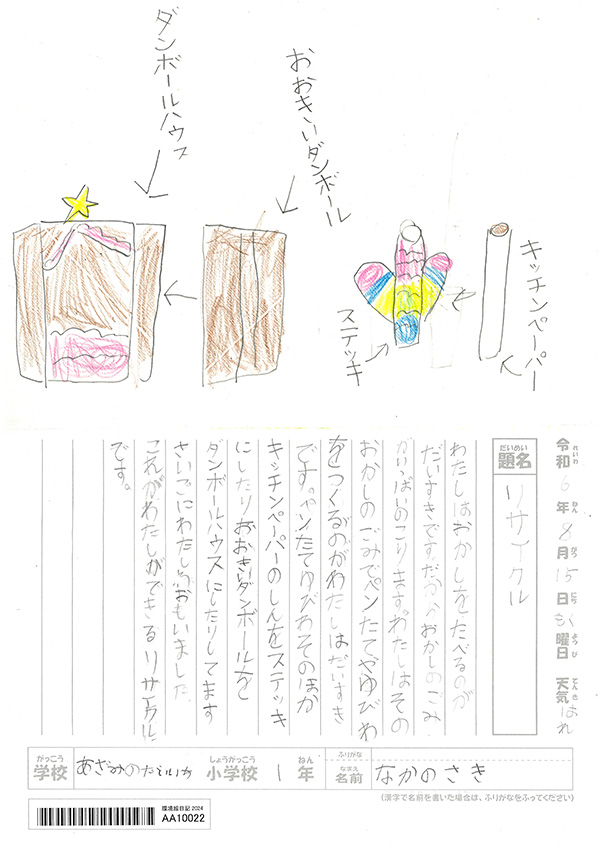 ダンボールハウス
おおきいダンボール
ステッキ
キッチンペーパー
令和6年8月15日もく曜日 天気 はれ
れいわ ねん がつ にち ようび てんき
だいめい
題名
リサイクル
わたしはおかしをたべるのが
だいすきです。だからおかしのごみ
がいっぱいのこります。わたしはその
おかしのごみでペンたてやゆびわ
をつくるのがわたしはだいすき
です。ペンたてゆびわそのほか
キッチンペーパーのしんをステッキ
にしたりおおきいダンボールを
ダンボールハウスにしたりしてます
さいごにわたしはおもいました
これがわたしができるリサイクル
です。
がっこう
学校
あざみのだいいち
しょうがっこう
小学校
1
ねん
年
ふりがな
なまえ
名前
なかのさき
(漢字で名前を書いた場合は、ふりがなをふってください)
環境絵日記 2024
AA10022